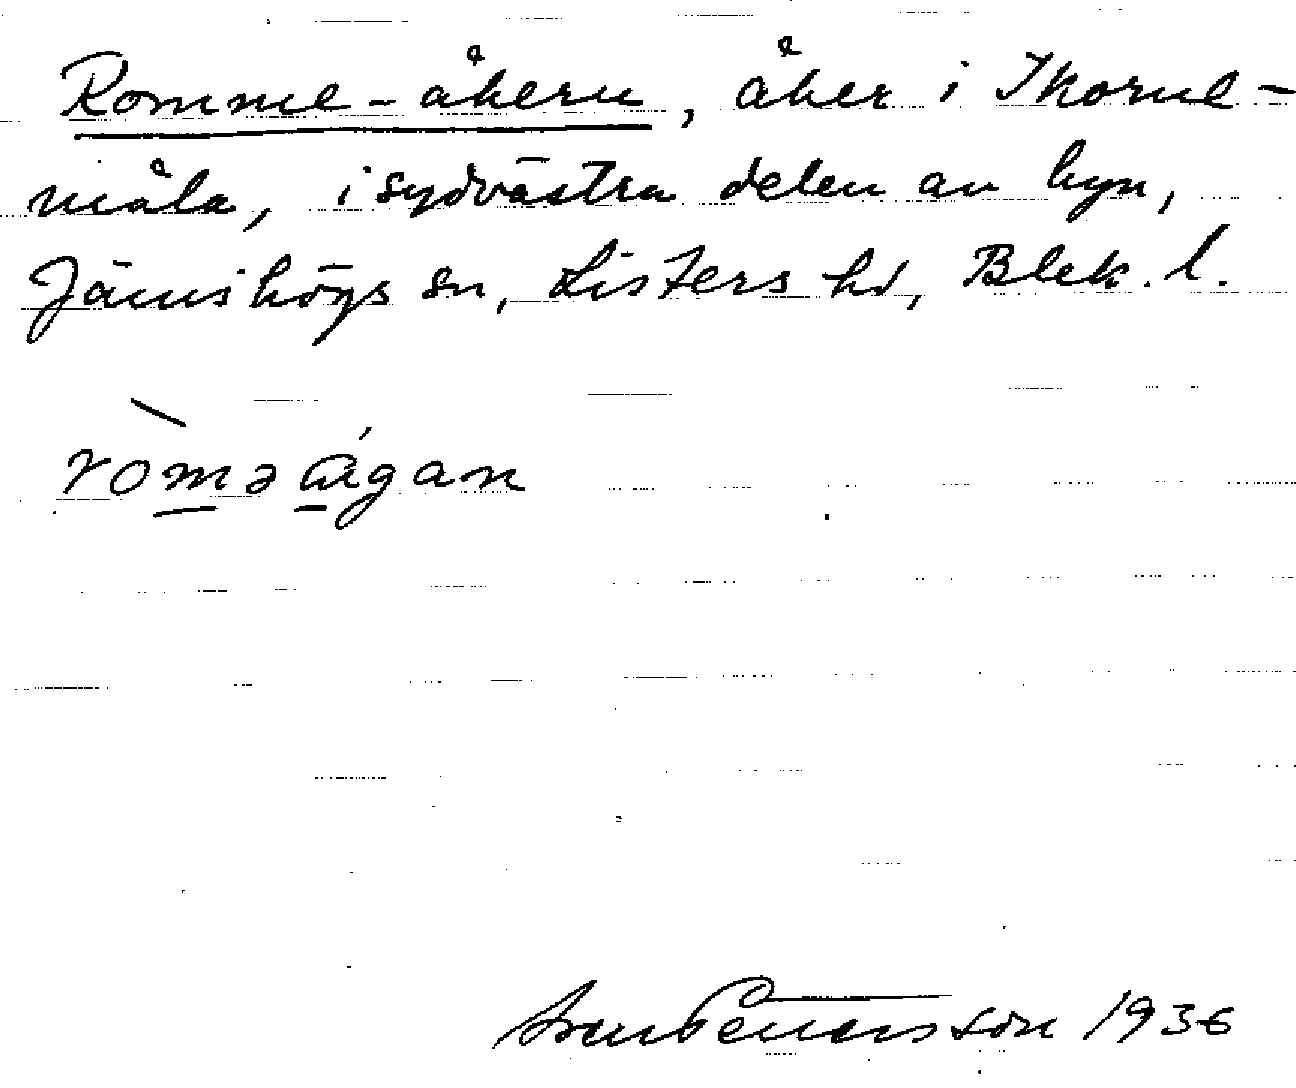 Romme-åkern, åker i Ikorne-
måla, i sydvästra delen av byn,
Jämshögs sn, Listers hd, Blek. l.
ròmə ågan
Sven Petersson 1936